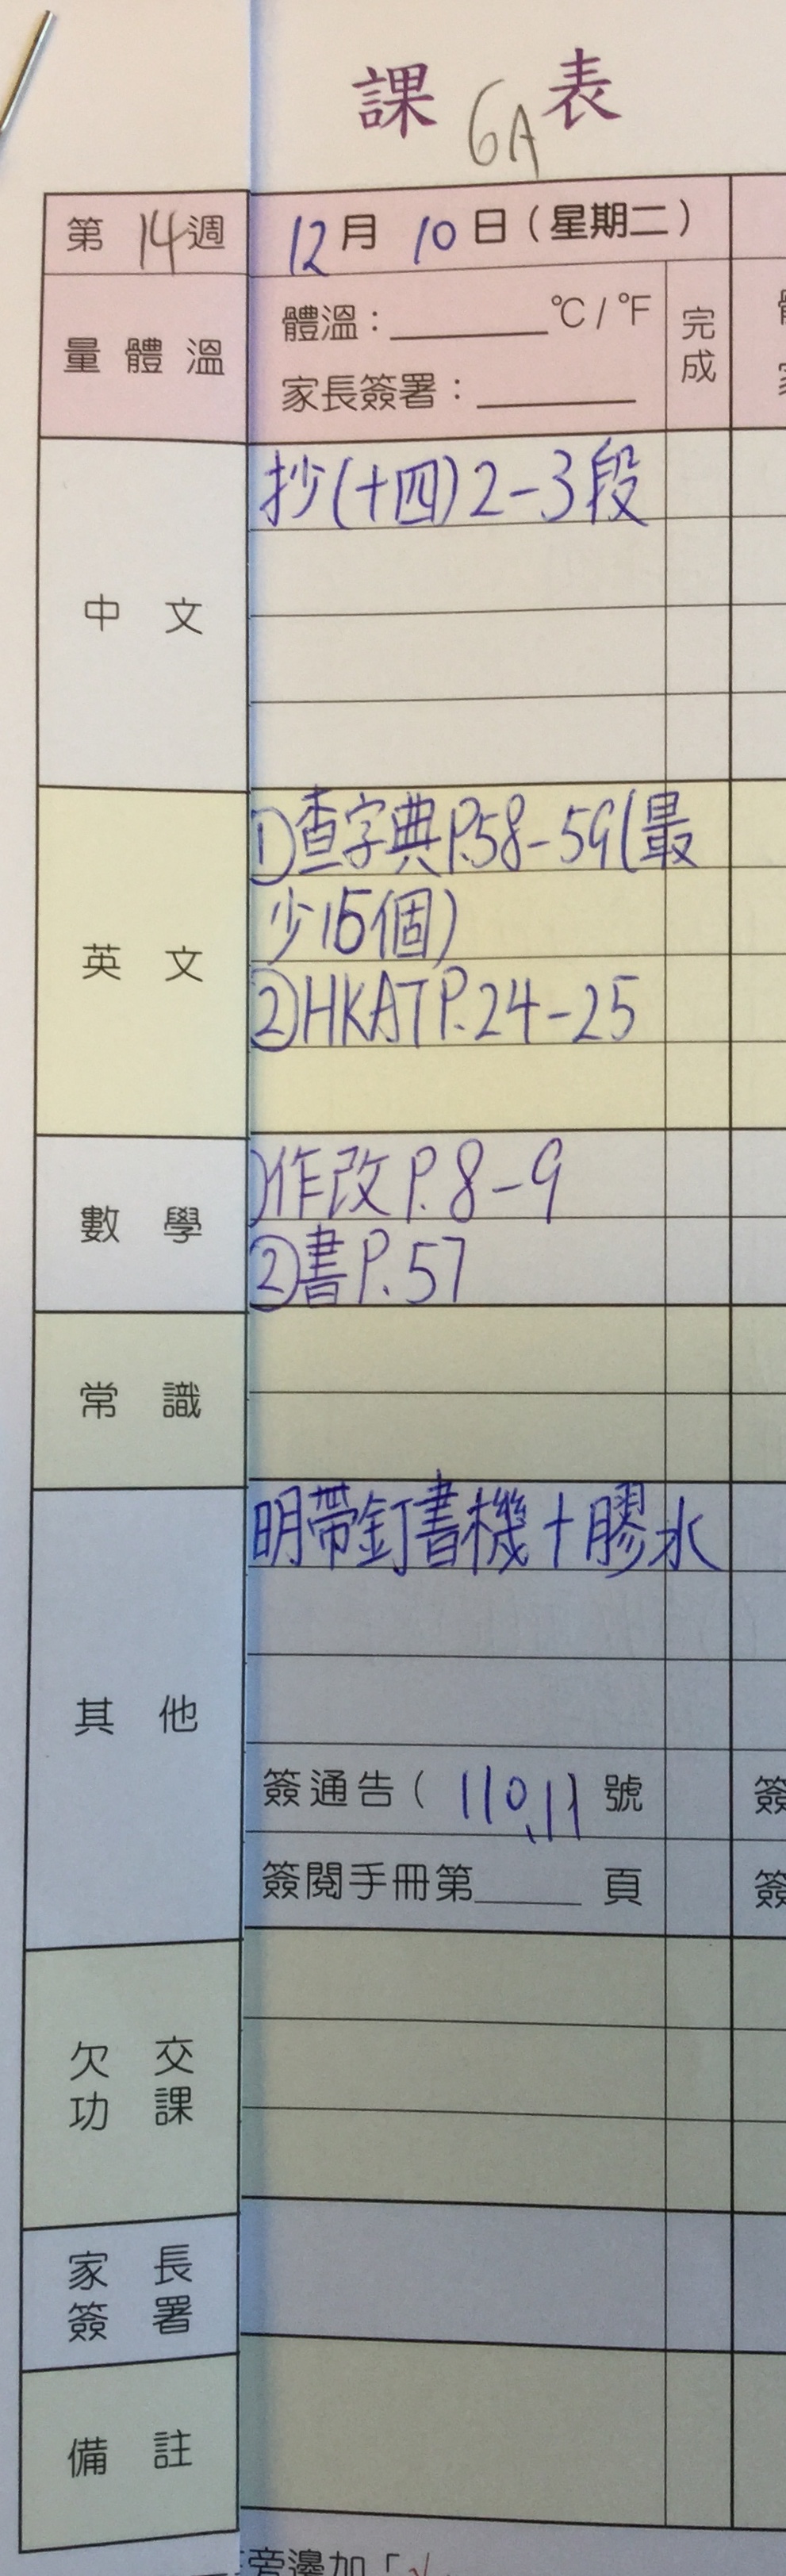 課 6A 表
第 14 週
12 月 10 日 ( 星期二 )
量體溫
體溫：______ °C / °F
家長簽署：______
完成
中文
抄(十四)2-3段
英文
①查字典P.58-59(最
少15個)
②HKAT P.24-25
數學
)作改P.8-9
②書P.57
常識
其他
明帶釘書機+膠水
簽通告( 110,11 號
簽
簽閱手冊第______頁
簽
欠交功課
家長簽署
備註
旁邊加「